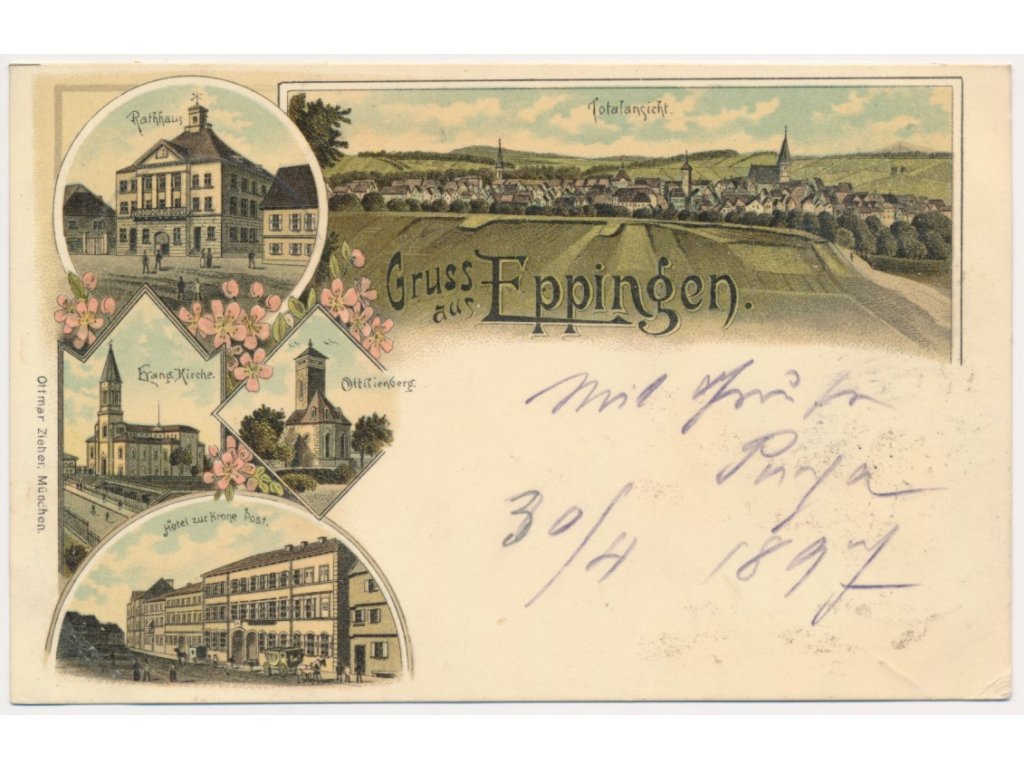 Rathhaus
Totalansicht.
Gruss
aus Eppingen.
Evang. Kirche.
Ottilienberg.
Hôtel zur Krone Post.
Ottmar Zieher, München.
Mit
30/4 1897